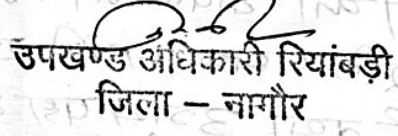 उपखण्ड अधिकारी रियांबड़ी
जिला – नागौर